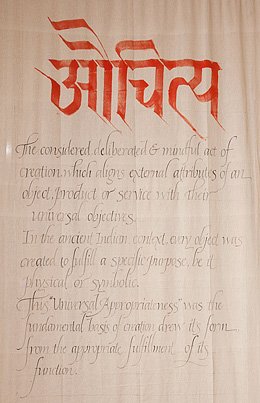 औचित्य
The considered, deliberated & mindful act of
creation, which aligns external attributes of an
object, product or service with their
universal objectives.
In the ancient Indian context, every object was
created to fulfill a specific purpose, be it
physical or symbolic.
This "Universal Appropriateness" was the
fundamental basis of creation drew its form,
from the appropriate fulfillment of its
function.